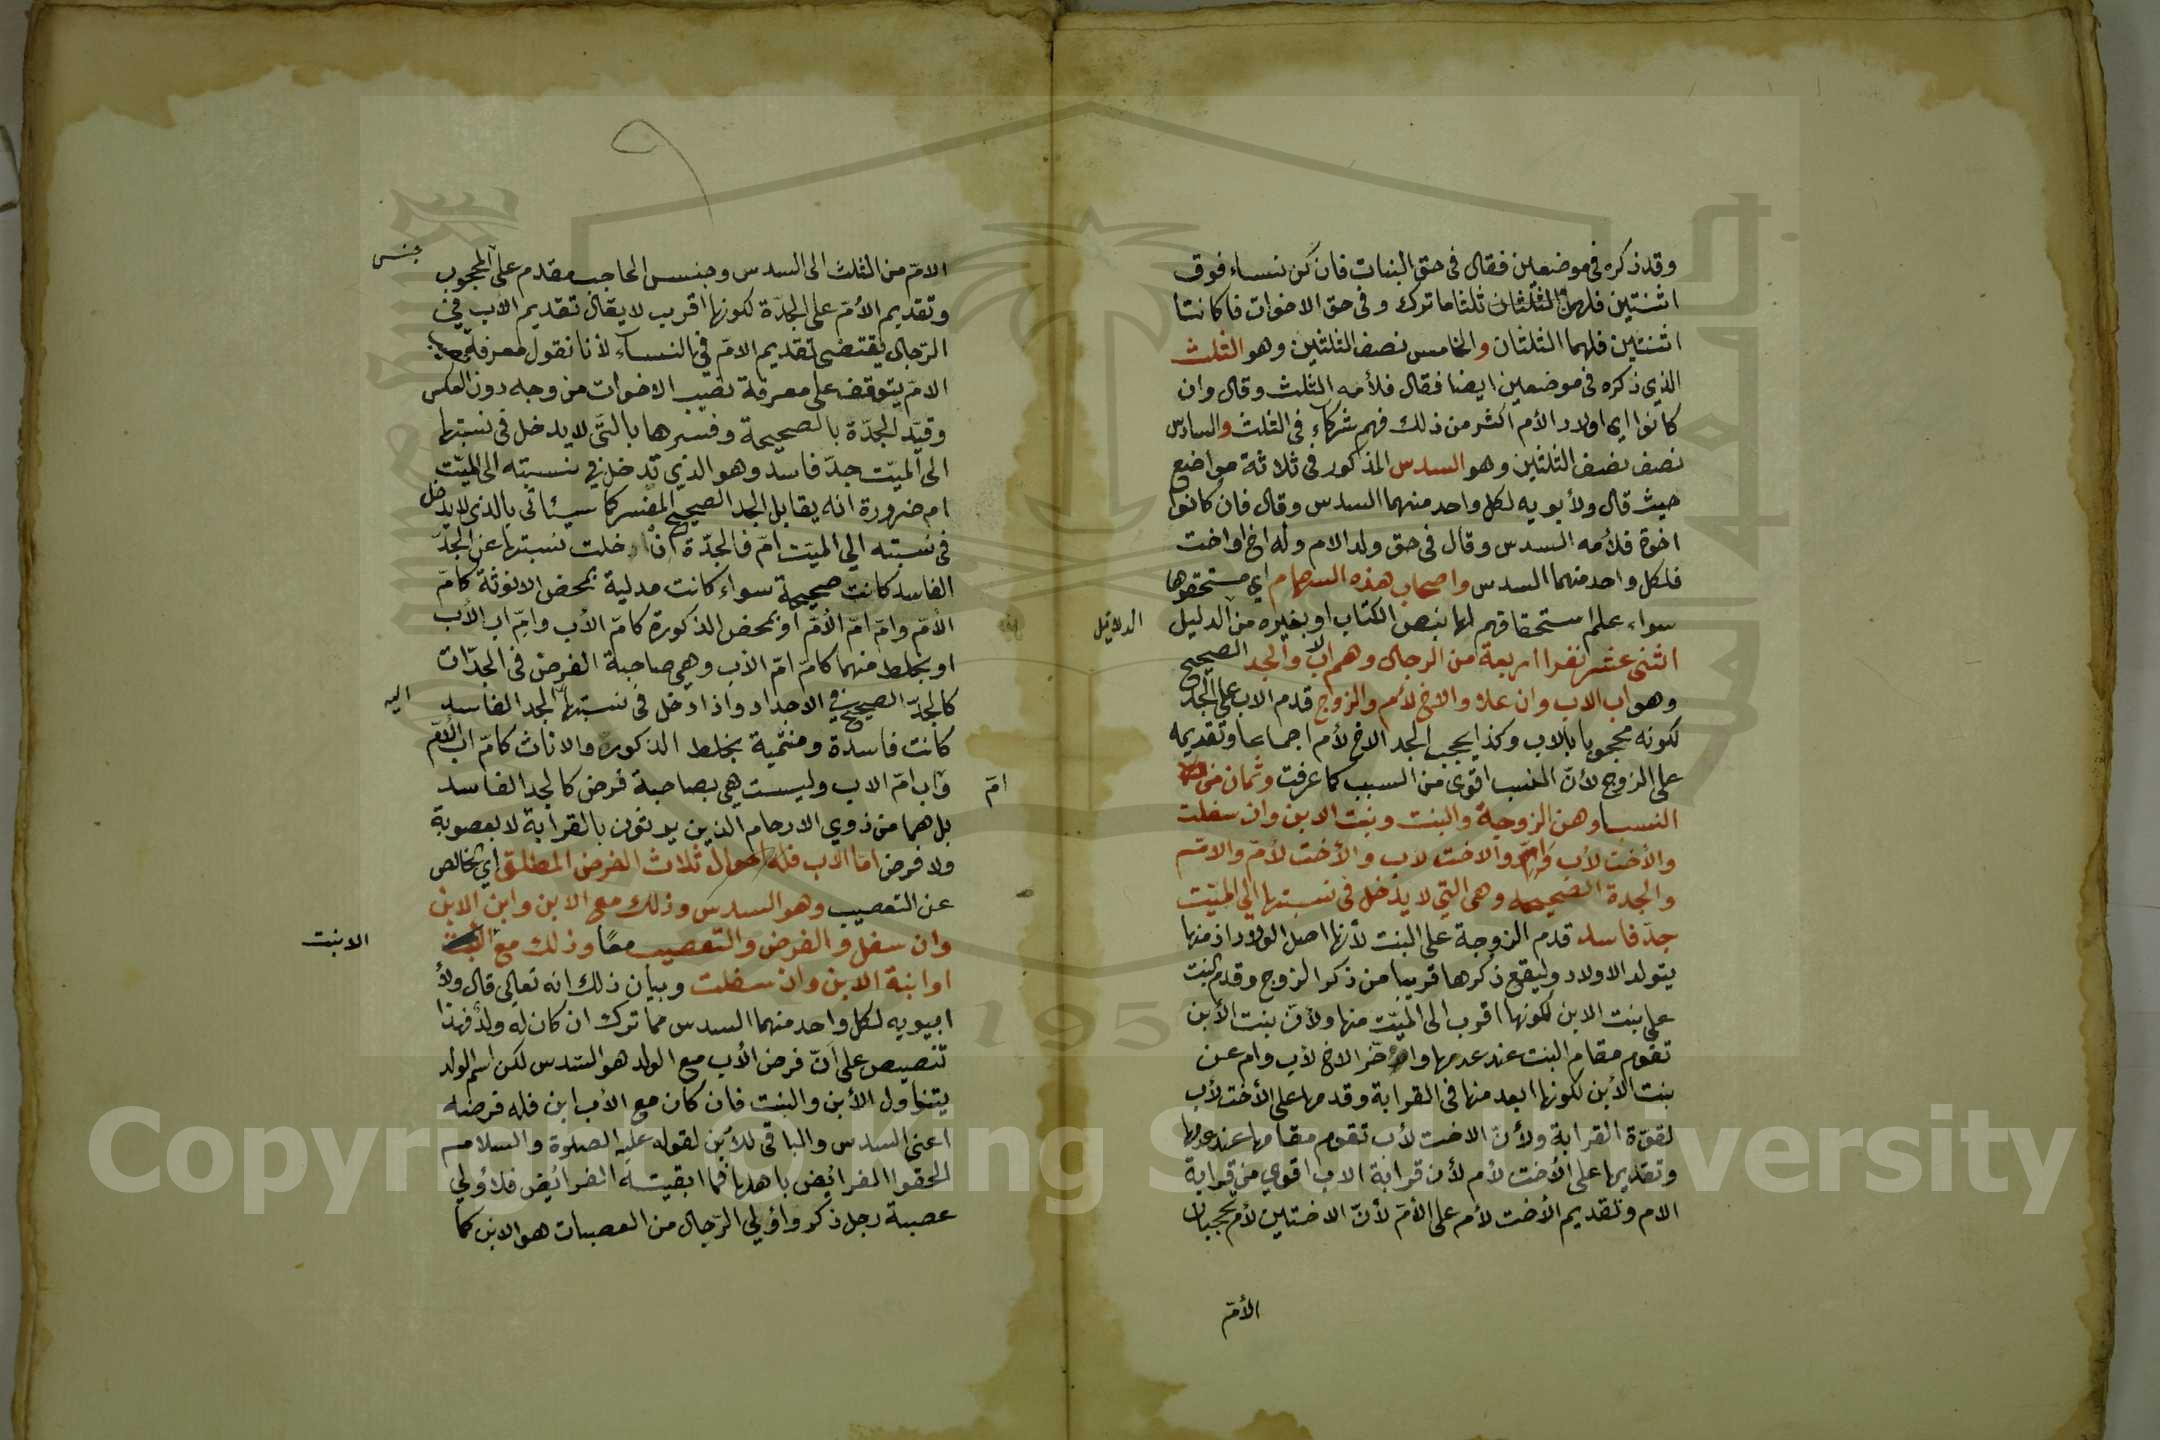 وقد ذكره في موضعين فقال في حق البنات فان كن نساء فوق
اثنتين فلهن الثلثان ثلثا ما ترك وفي حق الاخوات فا كانتا
اثنتين فلهما الثلثان والخامس نصف الثلثين وهو الثلث
الذي ذكره في موضعين ايضا فقال فلأمه الثلث وقال وان
كانوا اي اولاد الأم اكثر من ذلك فهم شركاء في الثلث والسادس
نصف نصف الثلثين وهو السدس المذكور في ثلاثة مواضع
حيث قال ولأبويه لكل واحد منهما السدس وقال فان كانوا
اخوة فلأمه السدس وقال في حق ولد الام وله اخ او اخت
فلكل واحد منهما السدس واصحاب هذه السهام اي مستحقوها
سواء علم استحقاقهم لها بنص الكتاب او بغيره من الدليل
الدلائل
اثنى عشر نفرا اربعة من الرجال وهم الاب والجد الصحيح
وهو اب الاب وان علا والاخ لأم والزوج قدم الاب على الجد
لكونه محجوبا بالاب وكذا يحجب الجد الاخ لأم اجماعا وتقديمه
على الزوج لأن النسب اقوى من السبب كما عرفت وثمان من
النساء وهن الزوجة والبنت وبنت الابن وان سفلت
والأخت لأب وام والاخت لاب والأخت لأم والام
والجدة الصحيحة وهي التي لا يدخل في نسبتها الى الميت
جد فاسد قدم الزوجة على البنت لأنها اصل الولاد اذ منها
يتولد الاولاد وليقع ذكرها قريبا من ذكر الزوج وقدم البنت
على بنت الابن لكونها اقرب الى الميت منها ولأن بنت الأبن
تقوم مقام البنت عند عدمها واخر الاخ لأب وام عن
بنت الأبن لكونها ابعد منها في القرابة وقدمها على الأخت لأب
لقوة القرابة ولأن الاخت لأب تقوم مقامها عند عدمها
وتقديمها على الأخت لأم لأن قرابة الاب اقوى من قرابة
الام وتقديم الأخت لأم على الأم لأن الاختين لأم يحجبان
الأم
الام من الثلث الى السدس وجنس الحاجب مقدم على المحجوب
جنس
وتقديم الأم على الجدة لكونها اقرب لا يقال تقديم الاب في
الرجال يقتضى تقديم الام في النساء لأنا نقول معرفة
الام يتوقف على معرفة نصيب الاخوات من وجه دون العكس
وقيد الجدة بالصحيحة وفسرها بالتي لا يدخل في نسبتها
الى الميت جد فاسد وهو الذي تدخل في نسبته الى الميت
ام ضرورة انه يقابل الجد الصحيح المفسر كما سيئاتى بالذي لا يدخل
في نسبته الى الميت ام فالجدة اذا خلت نسبتها عن الجد
الفاسد كانت صحيحة سواء كانت مدلية بمحض الانوثة كام
الأم وام ام الأم او بمحض الذكورة كام الأب وام اب الأب
او بخلط منهما كام ام الأب وهي صاحبة الفرض في الجدات
كالجد الصحيح في الاجداد واذا دخل في نسبتها الجد الفاسد
اليه
كانت فاسدة ومنتمية بخلط الذكورة والاناث كام اب الأم
واب ام الاب وليست هي بصاحبة فرض كالجد الفاسد
ام
بل هما من ذوي الارحام الذين يرثون بالقرابة لا بعصوبة
ولا فرض اما الأب فله احوال ثلاث الفرض المطلق اي الخالص
عن التعصيب وهو السدس وذلك مع الابن وابن الابن
وان سفل والفرض والتعصيب معا وذلك مع البنت
الابنت
او ابنة الابن وان سفلت وبيان ذلك انه تعالى قال ولأ
ابويه لكل واحد منهما السدس مما ترك ان كان له ولد فهذا
تنصيص على ان فرض الأب مع الولد هو السدس لكن اسم الولد
يتناول الأبن والبنت فان كان مع الأب ابن فله فرضه
اعنى السدس والباقي للأبن لقوله عليه الصلوة والسلام
الحقوا الفرائض باهلها فما ابقيته الفرائض فلأولي
عصبة رجل ذكر واولي الرجال من العصبات هو الابن كما
1957
Copyright © King Saud University